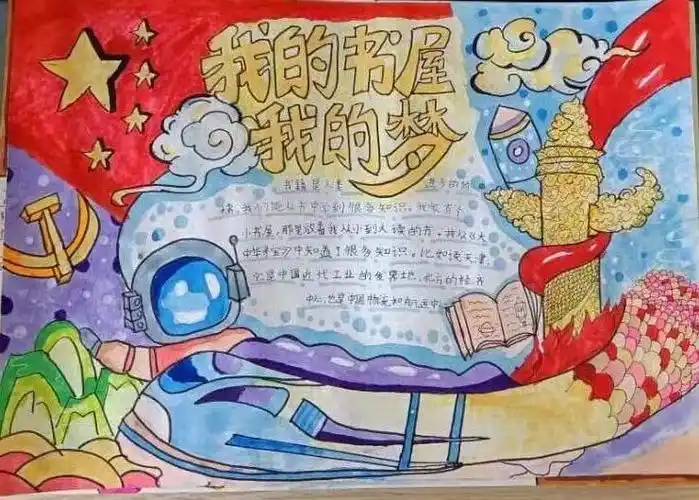 我的书屋
我的梦
书籍是人类 进步的阶
梯,我们能从书中学到很多知识。我家有个
小书屋,那里放着我从小到大读的书,我从《大
中华寻宝》中知道了很多知识。比如说天津,
它是中国近代工业的发祥地,北方的经济
中心,也是中国